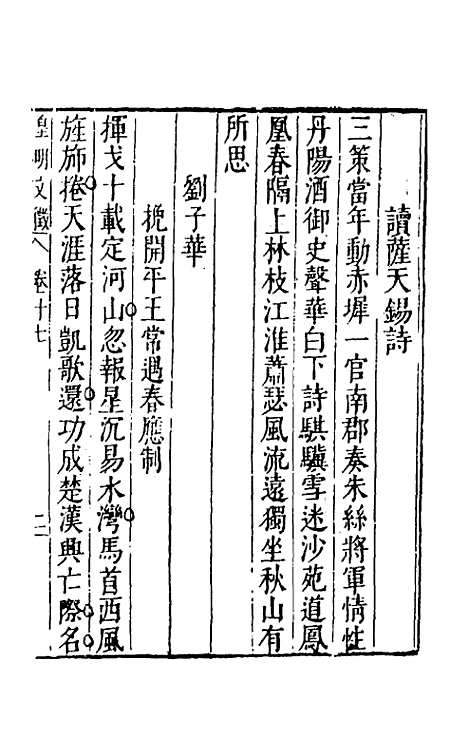 讀薩天錫詩
三策當年動赤墀一官南郡奏朱絲將軍情性
丹陽酒御史聲華白下詩騏驥雪迷沙苑道鳳
凰春隔上林枝江淮蕭瑟風流遠獨坐秋山有
所思
劉子華
挽開平王常遇春應制
揮戈十載定河山忽報星沉易水灣馬首西風
旌斾捲天涯落日凱歌還功成楚漢興亡際名
皇明文徵卷十七
二